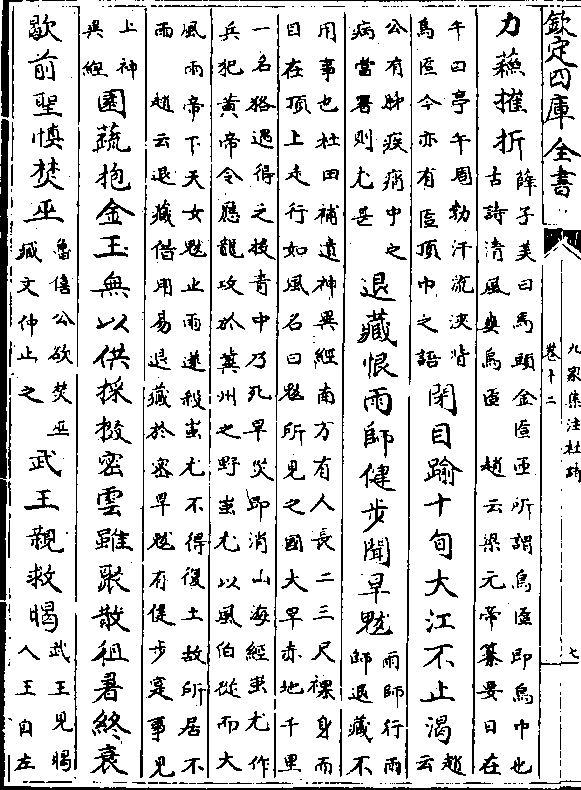 欽定四庫全書
九家集注杜詩
卷十二
七
力蘓摧折
薛子美曰馬頭金匼匝所謂烏匼即烏巾也
古詩清風爽烏匼 趙云梁元帝纂要日在
午曰亭午周勃汗流浹背
烏匼今亦有匼頂巾之語
閉目踰十旬大江不止渴
趙
云
公有肺疾痟中之
病當暑則尤甚
退藏恨雨師健步聞旱魃
雨師行雨
師退藏不
用事也杜田補遺神異經南方有人長二三尺裸身而
目在頂上走行如風名曰魃所見之國大旱赤地千里
一名狢遇得之投青中乃死旱災即消山海經蚩尤作
兵犯黄帝令應龍攻於冀州之野蚩尤以風伯從而大
風雨帝下天女魃止雨遂殺蚩尤不得復土故所居不
雨 趙云退藏借用易退藏於密旱魃有健步寔事見
上神
異經
園蔬抱金玉無以供採掇密雲雖聚散徂暑終衰
歇前聖慎焚巫
魯僖公欲焚巫
臧文仲止之
武王親救暍
武王見暍
人王自左